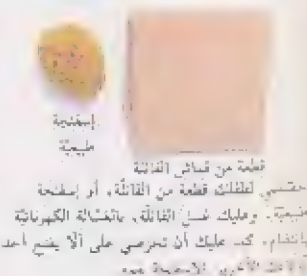 إسفنجة
طبيعيّة
قطعة من قماش الفانلة
لطفلك قطعة من الفانلّة، أو إسفنجة
طبيعيّة. وعليك غسل الفانلّة، بالغسّالة الكهربائيّة
بانتظام، كما عليك أن تحرصي على ألّا يضع أحد